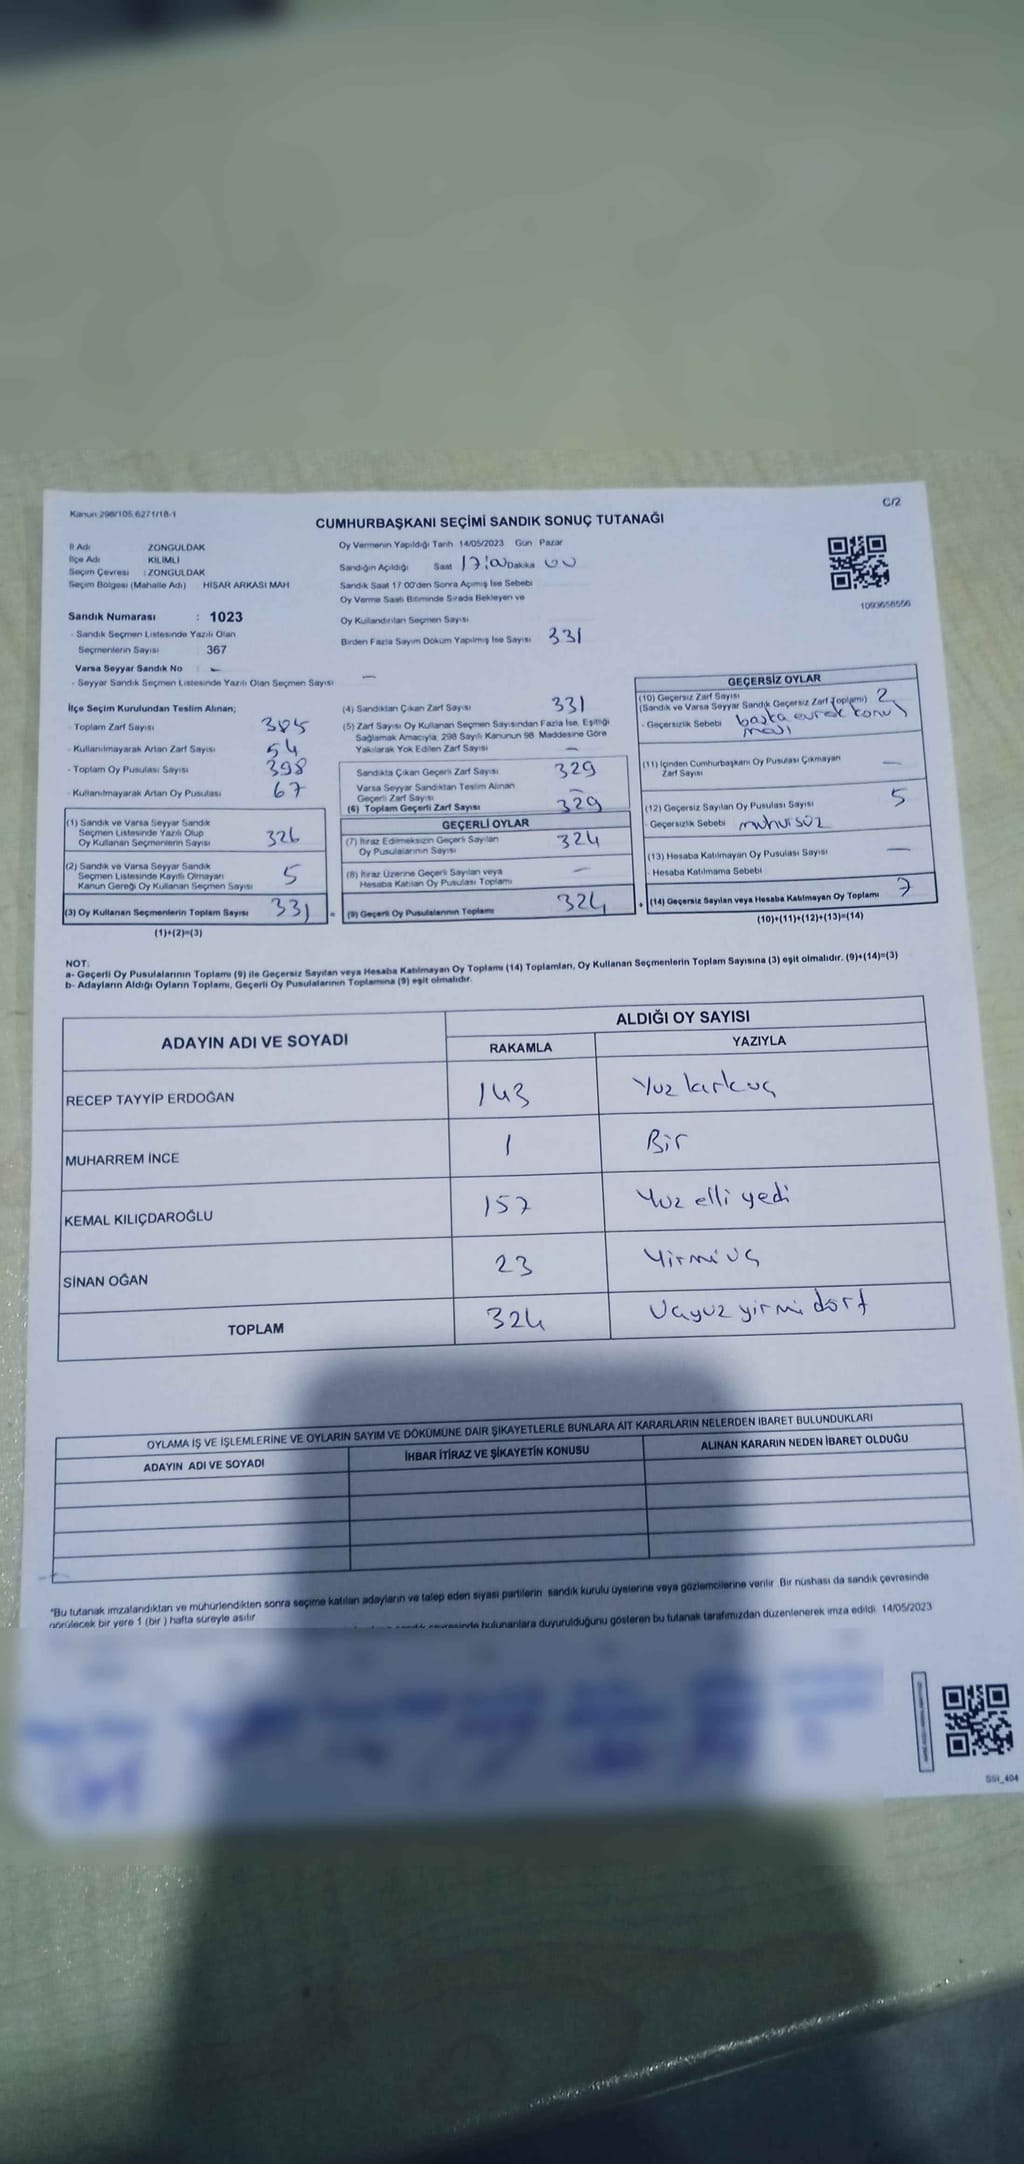 Kanun:298/105,6271/18-1
C/2
CUMHURBAŞKANI SEÇİMİ SANDIK SONUÇ TUTANAĞI
İl Adı ZONGULDAK
İlçe Adı KİLİMLİ
Seçim Çevresi : ZONGULDAK
Seçim Bölgesi (Mahalle Adı) HİSAR ARKASI MAH
Sandık Numarası : 1023
- Sandık Seçmen Listesinde Yazılı Olan
Seçmenlerin Sayısı 367
Varsa Seyyar Sandık No : -
- Seyyar Sandık Seçmen Listesinde Yazılı Olan Seçmen Sayısı —
Oy Vermenin Yapıldığı Tarih 14/05/2023 Gün Pazar
Sandığın Açıldığı Saat 17:00 Dakika 00
Sandık Saat 17 00'den Sonra Açılmış İse Sebebi
Oy Verme Saati Bitiminde Sırada Bekleyen ve
Oy Kullandırılan Seçmen Sayısı
Birden Fazla Sayım Döküm Yapılmış İse Sayısı 331
1093658556
İlçe Seçim Kurulundan Teslim Alınan;
- Toplam Zarf Sayısı 385
- Kullanılmayarak Artan Zarf Sayısı 54
- Toplam Oy Pusulası Sayısı 398
- Kullanılmayarak Artan Oy Pusulası 67
(1) Sandık ve Varsa Seyyar Sandık
Seçmen Listesinde Yazılı Olup
Oy Kullanan Seçmenlerin Sayısı 326
(2) Sandık ve Varsa Seyyar Sandık
Seçmen Listesinde Kayıtlı Olmayan
Kanun Gereği Oy Kullanan Seçmen Sayısı 5
(3) Oy Kullanan Seçmenlerin Toplam Sayısı 331 =
(1)+(2)=(3)
(4) Sandıktan Çıkan Zarf Sayısı 331
(5) Zarf Sayısı Oy Kullanan Seçmen Sayısından Fazla İse, Eşitliği
Sağlamak Amacıyla, 298 Sayılı Kanunun 98. Maddesine Göre
Yakılarak Yok Edilen Zarf Sayısı —
Sandıkta Çıkan Geçerli Zarf Sayısı 329
Varsa Seyyar Sandıktan Teslim Alınan
Geçerli Zarf Sayısı —
(6) Toplam Geçerli Zarf Sayısı 329
GEÇERLİ OYLAR
(7) İtiraz Edilmeksizin Geçerli Sayılan
Oy Pusulalarının Sayısı 324
(8) İtiraz Üzerine Geçerli Sayılan veya
Hesaba Katılan Oy Pusulası Toplamı —
(9) Geçerli Oy Pusulalarının Toplamı 324 +
GEÇERSİZ OYLAR
(10) Geçersiz Zarf Sayısı
(Sandık ve Varsa Seyyar Sandık Geçersiz Zarf Toplamı) 2
- Geçersizlik Sebebi başka evrak konul
ması
(11) İçinden Cumhurbaşkanı Oy Pusulası Çıkmayan
Zarf Sayısı —
(12) Geçersiz Sayılan Oy Pusulası Sayısı 5
- Geçersizlik Sebebi mühürsüz
(13) Hesaba Katılmayan Oy Pusulası Sayısı —
- Hesaba Katılmama Sebebi
(14) Geçersiz Sayılan veya Hesaba Katılmayan Oy Toplamı 7
(10)+(11)+(12)+(13)=(14)
NOT:
a- Geçerli Oy Pusulalarının Toplamı (9) ile Geçersiz Sayılan veya Hesaba Katılmayan Oy Toplamı (14) Toplamları, Oy Kullanan Seçmenlerin Toplam Sayısına (3) eşit olmalıdır. (9)+(14)=(3)
b- Adayların Aldığı Oyların Toplamı, Geçerli Oy Pusulalarının Toplamına (9) eşit olmalıdır.
ADAYIN ADI VE SOYADI
ALDIĞI OY SAYISI
RAKAMLA YAZIYLA
RECEP TAYYİP ERDOĞAN 143 Yüz kırk üç
MUHARREM İNCE 1 Bir
KEMAL KILIÇDAROĞLU 157 Yüz elli yedi
SİNAN OĞAN 23 Yirmi üç
TOPLAM 324 Üçyüz yirmi dört
OYLAMA İŞ VE İŞLEMLERİNE VE OYLARIN SAYIM VE DÖKÜMÜNE DAİR ŞİKAYETLERLE BUNLARA AİT KARARLARIN NELERDEN İBARET BULUNDUKLARI
ADAYIN ADI VE SOYADI İHBAR İTİRAZ VE ŞİKAYETİN KONUSU ALINAN KARARIN NEDEN İBARET OLDUĞU
*Bu tutanak imzalandıktan ve mühürlendikten sonra seçime katılan adayların ve talep eden siyasi partilerin sandık kurulu üyelerine veya gözlemcilerine verilir. Bir nüshası da sandık çevresinde
görülecek bir yere 1 (bir ) hafta süreyle asılır.
sandık çevresinde bulunanlara duyurulduğunu gösteren bu tutanak tarafımızdan düzenlenerek imza edildi. 14/05/2023
SSt_404